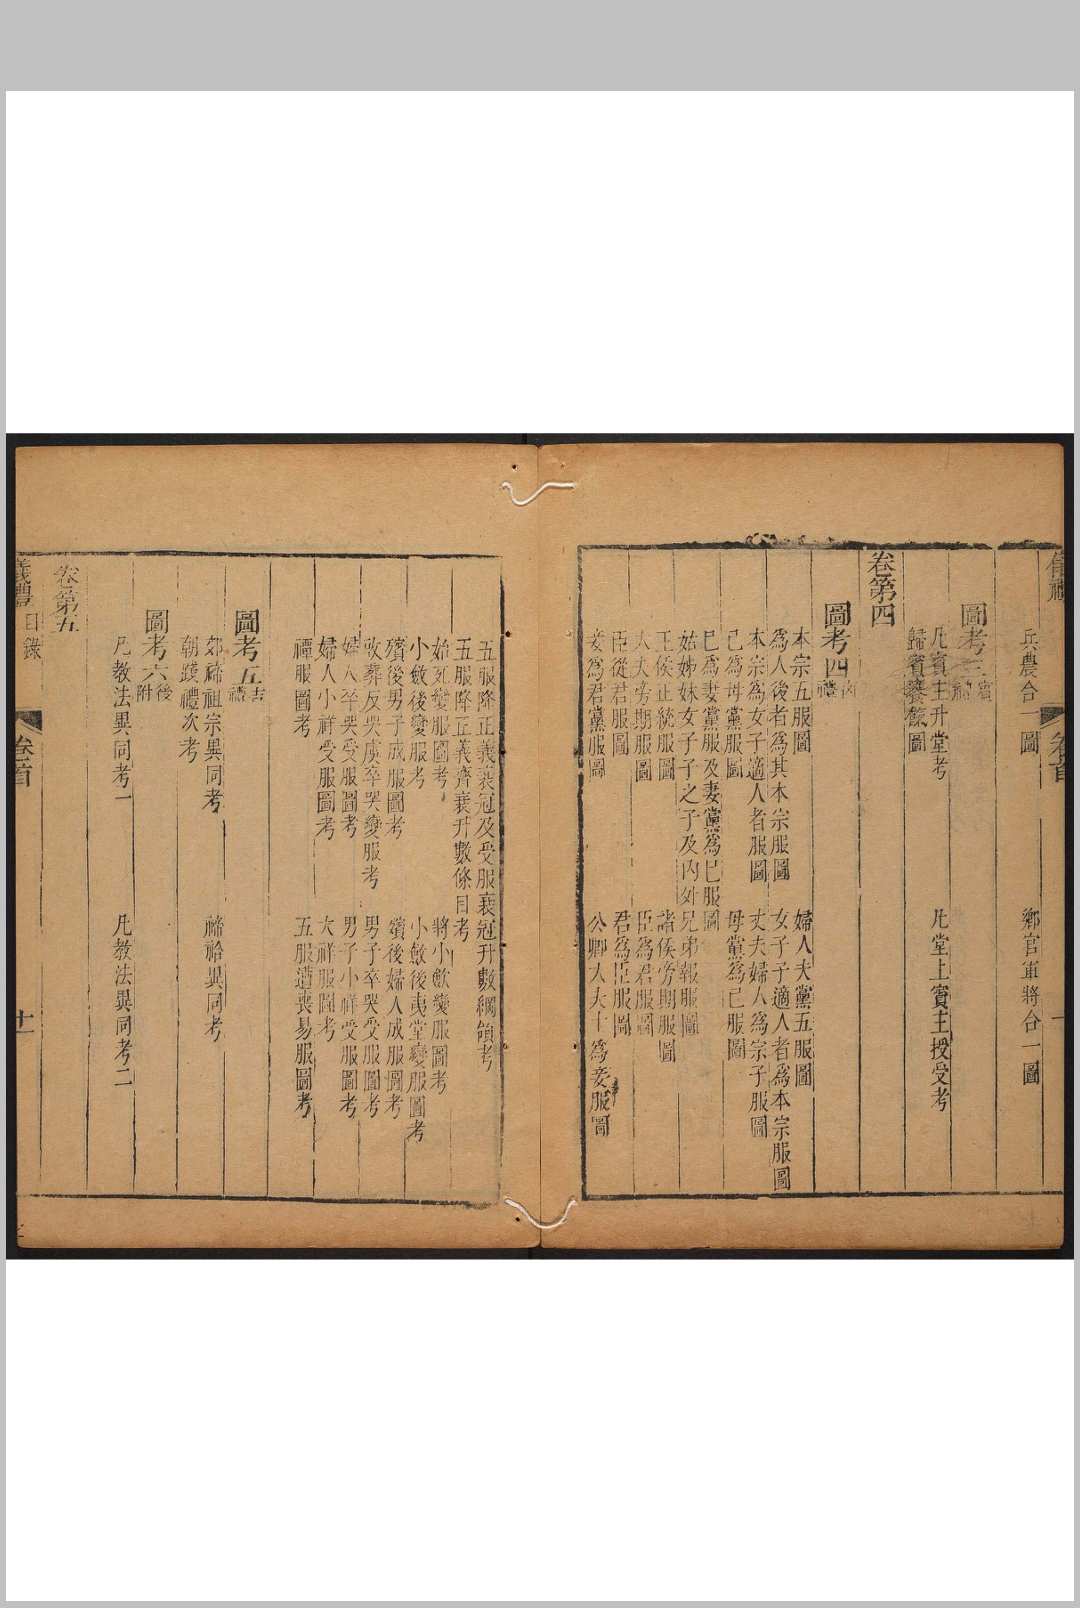 兵農合一圖　鄉官軍將合一圖
圖考三賓禮
凡賓主升堂考　凡堂上賓主授受考
歸賓饔餼圖
卷第四
圖考四凶禮
本宗五服圖　婦人夫黨五服圖
為人後者為其本宗服圖　女子子適人者為本宗服圖
本宗為女子適人者服圖　丈夫婦人為宗子服圖
己為母黨服圖　母黨為己服圖
己為妻黨服及妻黨為己服圖
姑姊妹女子子之子及內外兄弟報服圖
王侯正統服圖　諸侯旁期服圖
大夫旁期服圖　臣為君服圖
臣從君服圖　君為臣服圖
妾為君黨服圖　公卿大夫士為妾服圖
五服降正義衰冠及受服衰冠升數綱領考
五服降正義齊衰升數條目考
始死變服圖考　將小斂變服圖考
小斂後變服考　小斂後夷堂變服圖考
殯後男子成服圖考　殯後婦人成服圖考
啟葬反哭虞卒哭變服考　男子卒哭受服圖考
婦人卒哭受服圖考　男子小祥受服圖考
婦人小祥受服圖考　大祥服圖考
禫服圖考　五服遭喪易服圖考
圖考五吉禮
郊禘祖宗異同考　禘祫異同考
朝踐禮次考
圖考六後附
凡教法異同考一　凡教法異同考二
卷第五
儀禮　目錄　卷首　十一